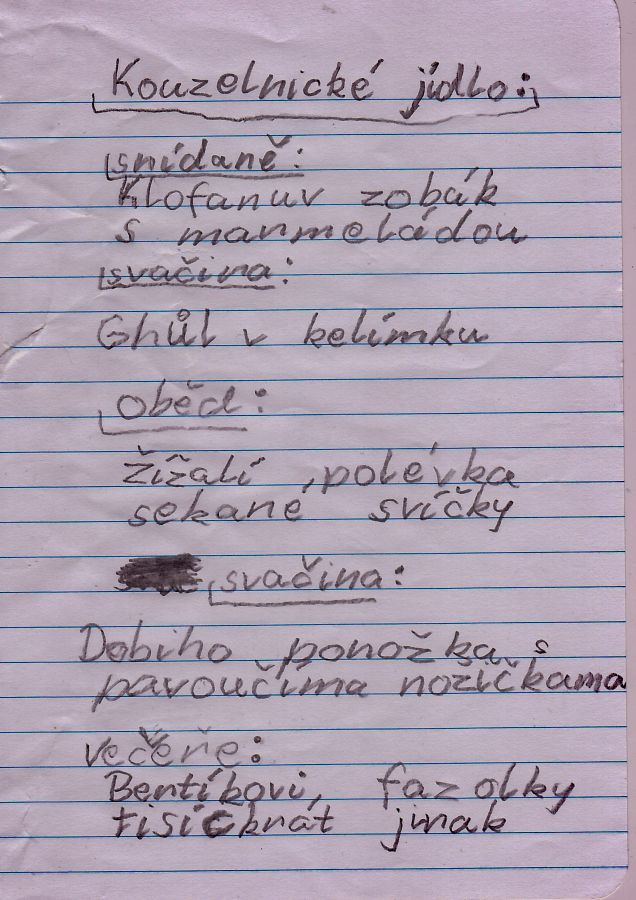 Kouzelnické jídlo:
snídaně:
Klofanuv zobák
s manmeládou
svačina:
Ghůl v kelímku
Oběd:
žížalí polévka
sekané svíčky
svačina:
Dobiho ponožka s
pavoučíma nožičkama
večeře:
Bertíkovi, fazolky
tisíckrát jinak